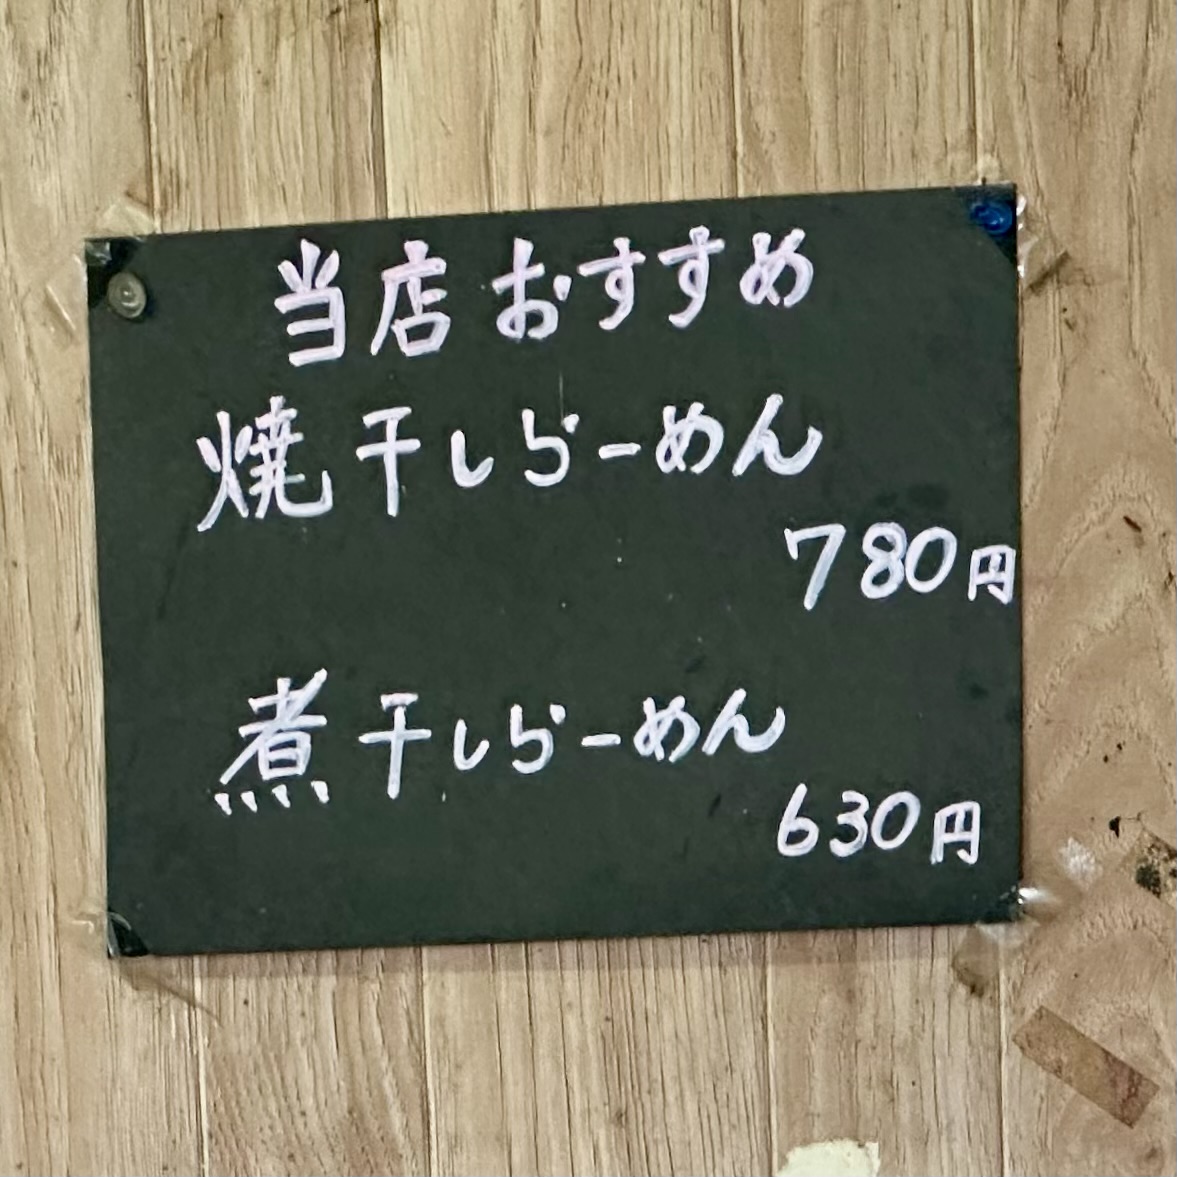 当店おすすめ
焼干しらーめん
780円
煮干しらーめん
630円